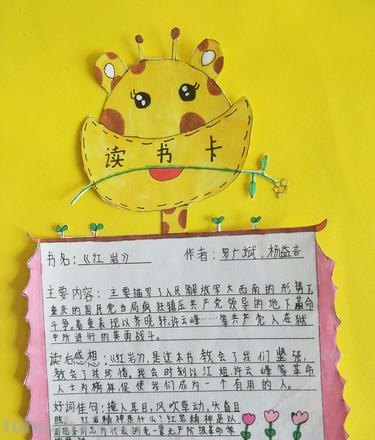 读 书 卡
书名：《红岩》 作者：罗广斌、杨益言
主要内容：主要描写了人民解放军大西南的形势下
重庆的国民党当局疯狂镇压共产党领导的地下革命
斗争。着重表现以齐晓轩、许云峰……等共产党人在狱
中所进行的英勇战斗。
读后感想：《红岩》，是这本书教会了我们坚强，
教会了我珍惜。我会时刻以江姐、许云峰等革命
人士为榜样，促使我们成为一个有用的人。
好词佳句：掩人耳目、风吹草动、
红岩精神是什么？红岩精神是以